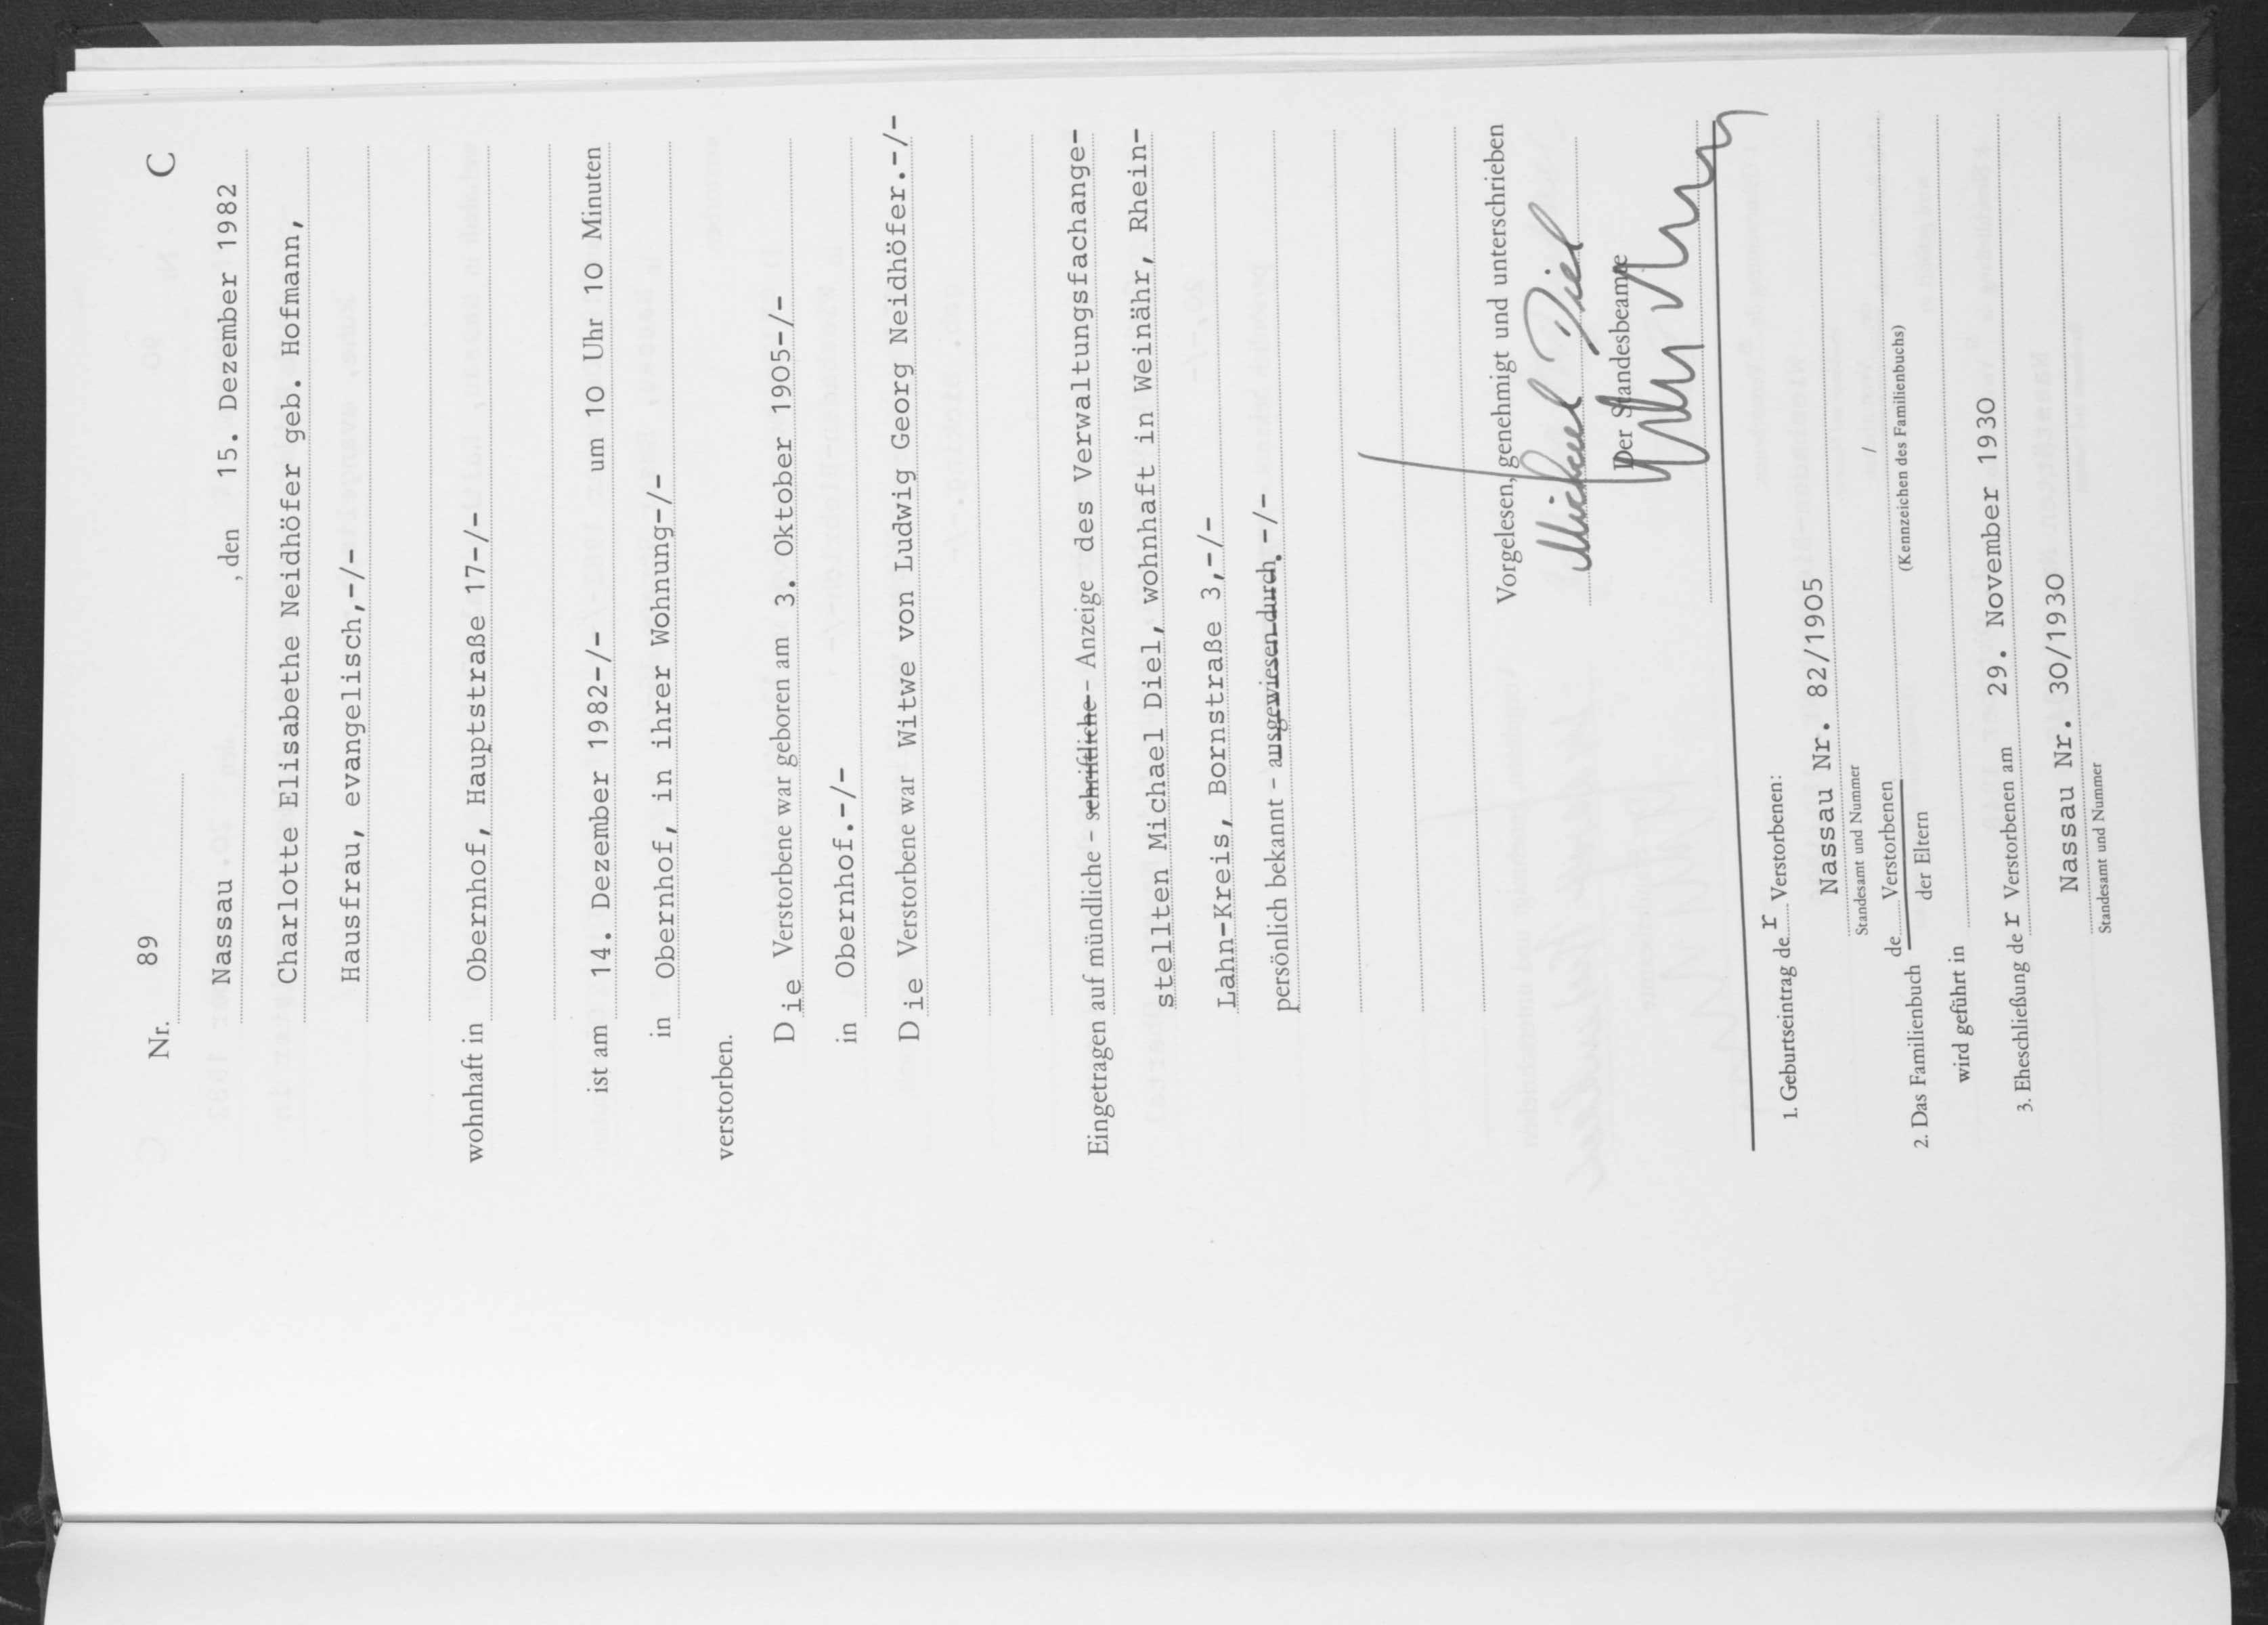 Nr. 89 C
Nassau , den 15. Dezember 1982
Charlotte Elisabethe Neidhöfer geb. Hofmann,
Hausfrau, evangelisch,-/-
wohnhaft in Obernhof, Hauptstraße 17-/-
ist am 14. Dezember 1982-/- um 10 Uhr 10 Minuten
in Obernhof, in ihrer Wohnung-/-
verstorben.
Die Verstorbene war geboren am 3. Oktober 1905-/-
in Obernhof.-/-
Die Verstorbene war Witwe von Ludwig Georg Neidhöfer.-/-
Eingetragen auf mündliche - schriftliche - Anzeige des Verwaltungsfachange-
stellten Michael Diel, wohnhaft in Weinähr, Rhein-
Lahn-Kreis, Bornstraße 3,-/-
persönlich bekannt - ausgewiesen durch. -/-
Vorgelesen, genehmigt und unterschrieben
Michael Diel
Der Standesbeamte
1. Geburtseintrag der Verstorbenen:
Nassau Nr. 82/1905
Standesamt und Nummer
2. Das Familienbuch de Verstorbenen / der Eltern
(Kennzeichen des Familienbuchs)
wird geführt in
3. Eheschließung der Verstorbenen am 29. November 1930
Nassau Nr. 30/1930
Standesamt und Nummer